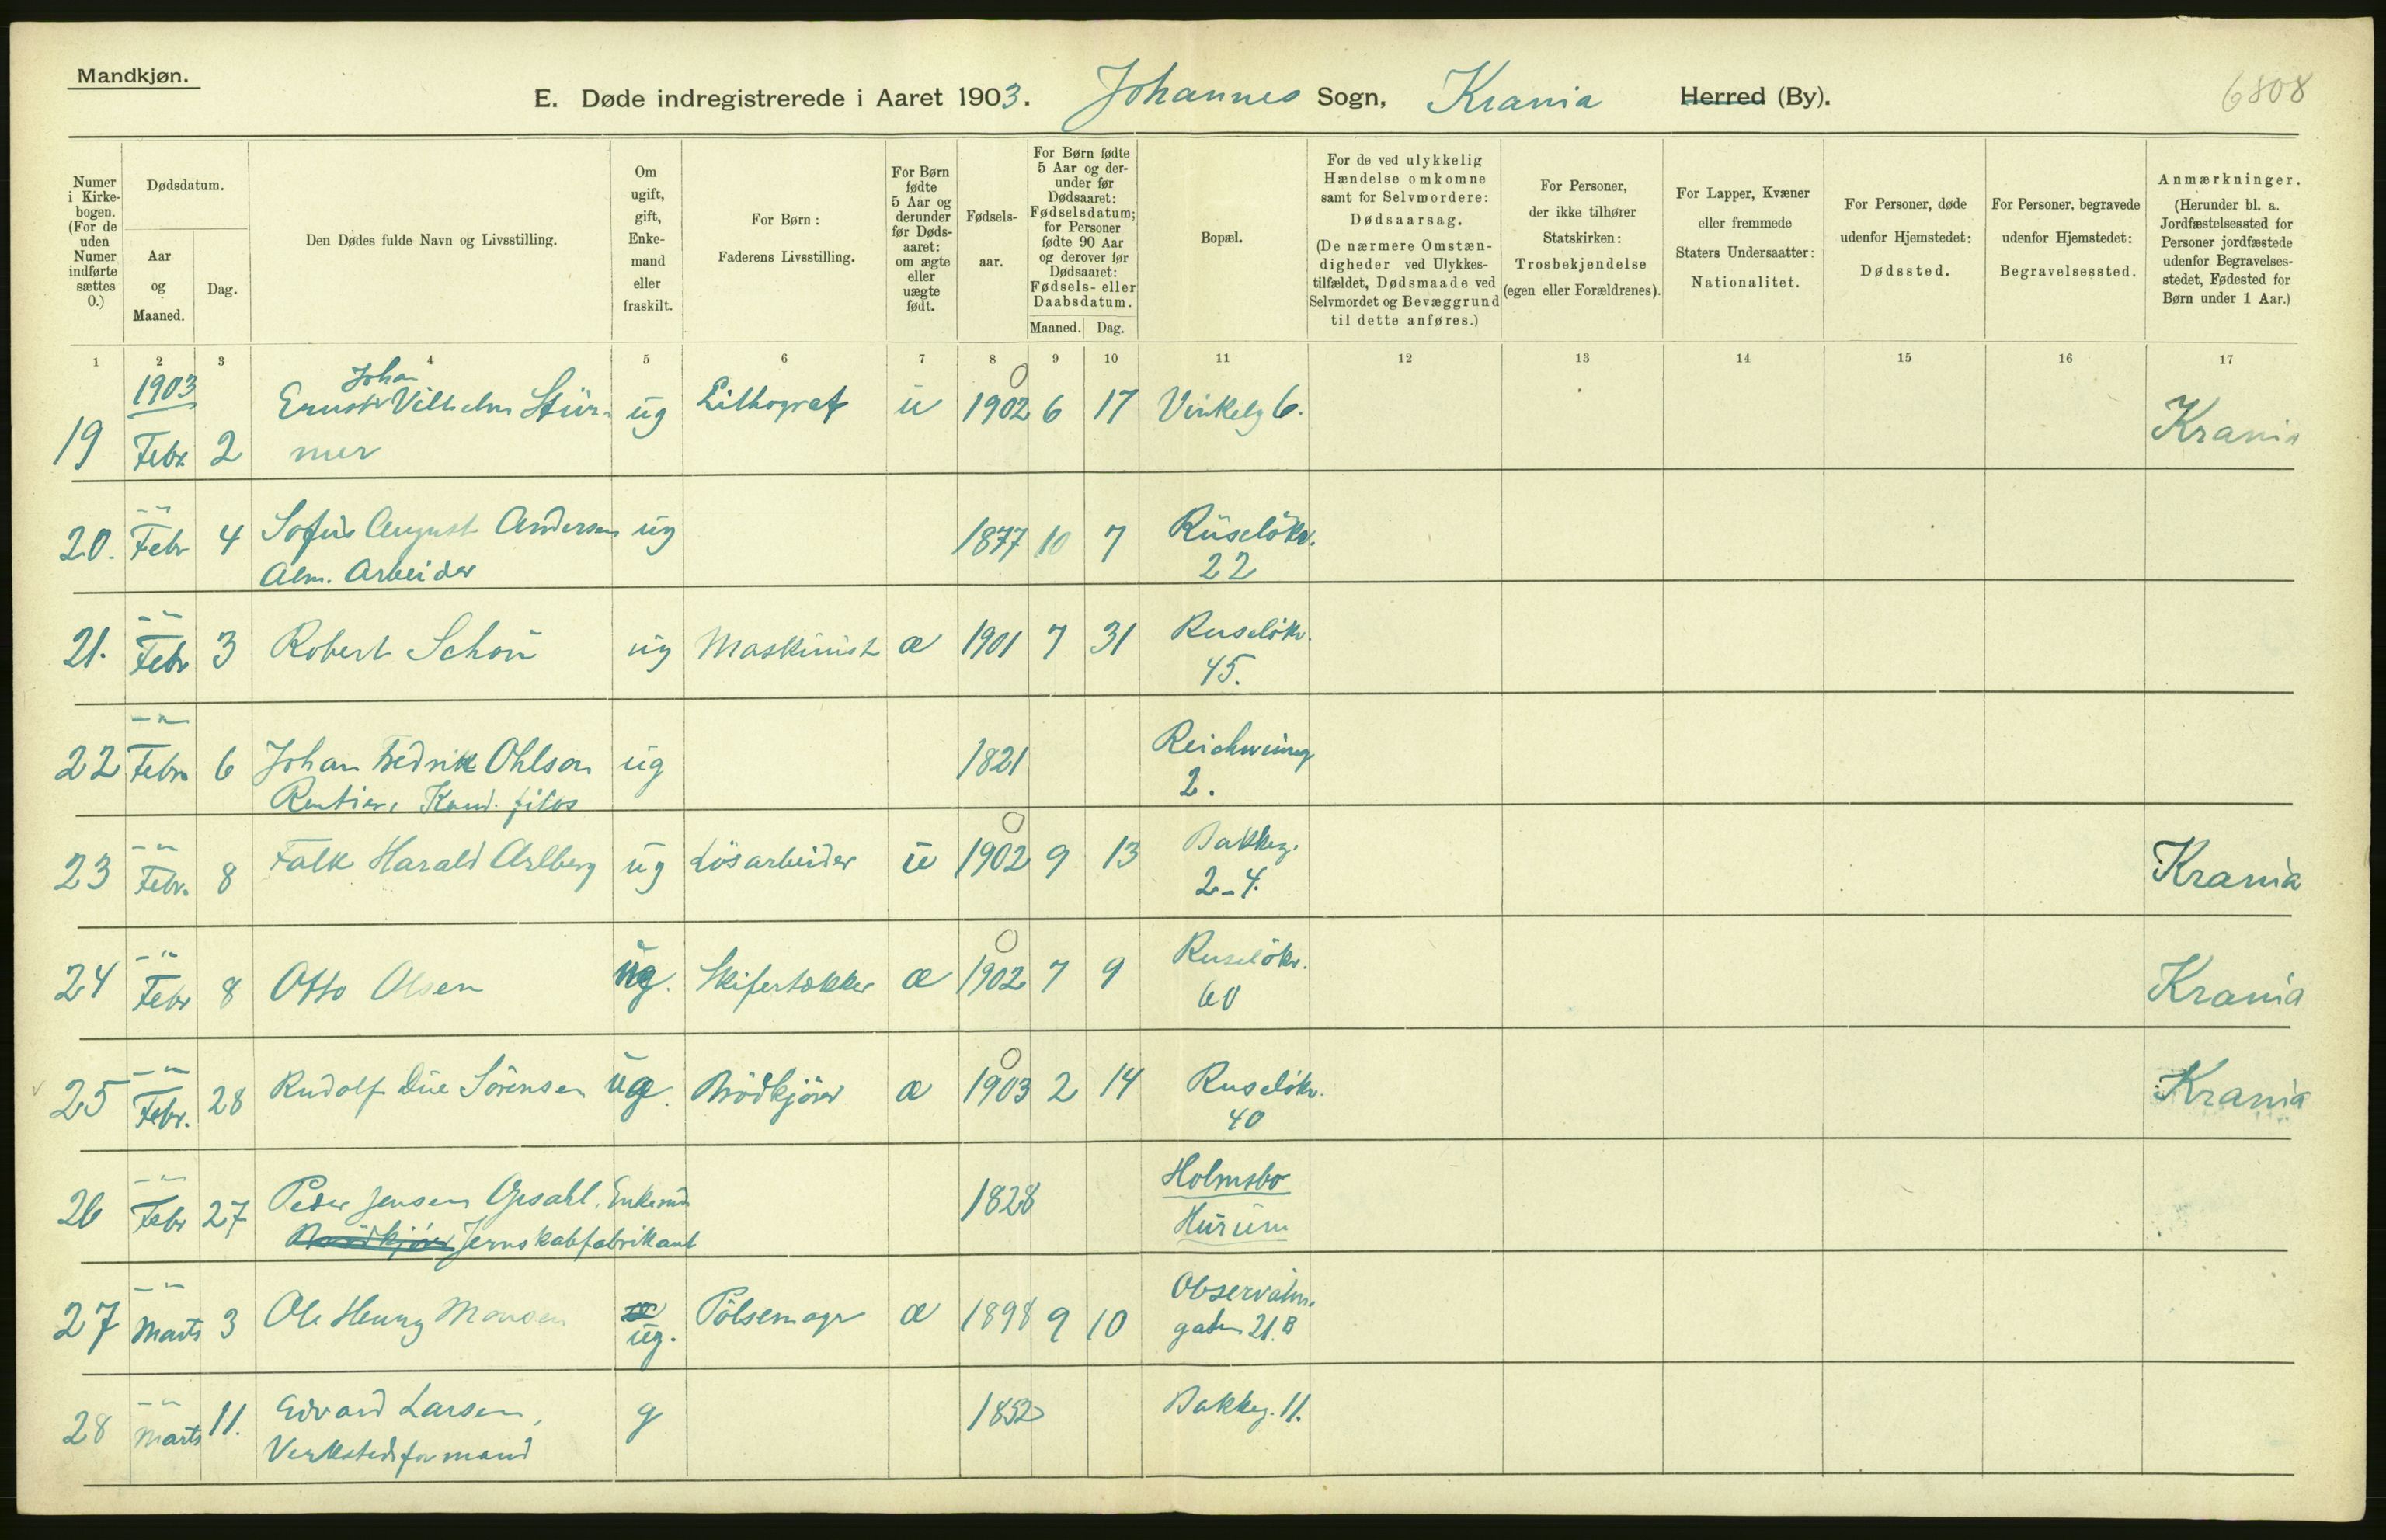 Mandkjøn.
E. Døde indregistrerede i Aaret 1903. Johannes Sogn, Krania Herred (By).
6808
Numer i Kirkebogen. (For de uden Numer indførte sættes 0.)
Dødsdatum.
Aar og Maaned.
Dag.
Den Dødes fulde Navn og Livsstilling.
Om ugift, gift, Enkemand eller fraskilt.
For Børn: Faderens Livsstilling.
For Børn fødte 5 Aar og derunder før Dødsaaret: om ægte eller uægte født.
Fødselsaar.
For Børn fødte 5 Aar og derunder før Dødsaaret: Fødselsdatum; for Personer fødte 90 Aar og derover før Dødsaaret: Fødsels- eller Daabsdatum.
Maaned. Dag.
Bopæl.
For de ved ulykkelig Hændelse omkomne samt for Selvmordere: Dødsaarsag. (De nærmere Omstændigheder ved Ulykkestilfældet, Dødsmaade ved Selvmordet og Bevæggrund til dette anføres.)
For Personer, der ikke tilhører Statskirken: Trosbekjendelse (egen eller Forældrenes).
For Lapper, Kvæner eller fremmede Staters Undersaatter: Nationalitet.
For Personer, døde udenfor Hjemstedet: Dødssted.
For Personer, begravede udenfor Hjemstedet: Begravelsessted.
Anmærkninger. (Herunder bl. a. Jordfæstelsessted for Personer jordfæstede udenfor Begravelsesstedet, Fødested for Børn under 1 Aar.)
1 2 3 4 5 6 7 8 9 10 11 12 13 14 15 16 17
1903
Johan
19 Febr 2 Ernst Vilhelm Stür- ug Lithograf u 1902 6 17 Vinkelg 6. Krania
mer
20. Febr 4 Sofus August Andersen ug 1877 10 7 Ruselökv.
Alm. Arbeider 22
21. Febr 3 Robert Schou ug Maskinist æ 1901 7 31 Ruselökv.
45.
22 Febr 6 Johan Fredrik Ohlson ug 1821 Reichweing
Rentier, Kand. filos 2.
23 Febr. 8 Falk Harald Arlberg ug Lösarbeider u 1902 9 13 Bakkeg. Krania
2-4.
24 Febr 8 Otto Olsen ug. Skifertækker æ 1902 7 9 Ruselökv. Krania
60
25 Febr. 28 Rudolf Due Sörensen ug. Brödkjörer æ 1903 2 14 Ruselökv. Krania
40
26 Febr 27 Peder Jensen Opsahl, Enkemd 1828 Holmsbo
Brödkjörer Jernskabfabrikant Hurum
27 Marts 3 Ole Henry Monsen ug. Pölsemagr æ 1898 9 10 Observatm.
gaten 21.B
28 Marts 11. Edvard Larsen, g 1852 Bakkeg. 11.
Verkstedsformand